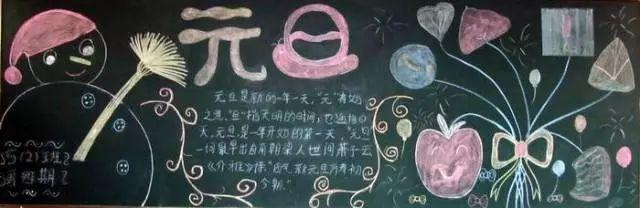 元旦
元旦是新的一年一天，"元"有始
之意，"旦"指天明的时间，也通指白
天，元旦是一年开始的第一天，"元旦"
一词最早出自南朝梁人世间萧子云
《介雅》诗："四气新元旦万寿初
今朝。"
5(2)班